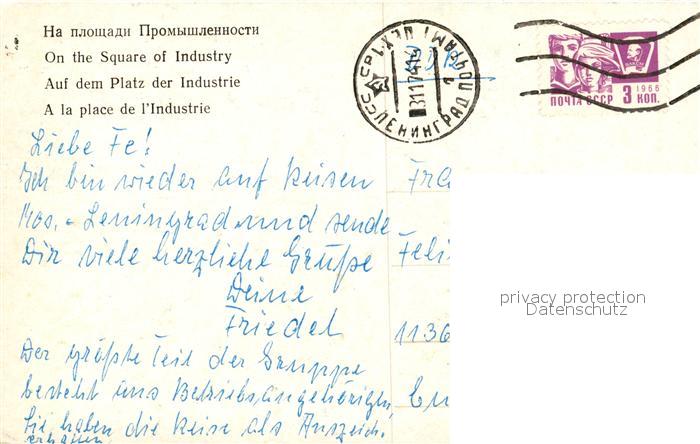 На площади Промышленности
On the Square of Industry
Auf dem Platz der Industrie
A la place de l'Industrie
ЛЕНИНГРАД ПОЧТАМТ
31 1 74
DDR
1966
ПОЧТА СССР 3 КОП.
Liebe Fe!
Ich bin wieder auf Reisen
Mos. - Leningrad und sende
Dir viele herzliche Grüße
Deine
Friedel
Der größte Teil der Gruppe
besteht aus Betriebsangehörigen,
Sie haben die Reise als Auszeich.
erhalten
Fra
Feli
1136
privacy protection
Datenschutz